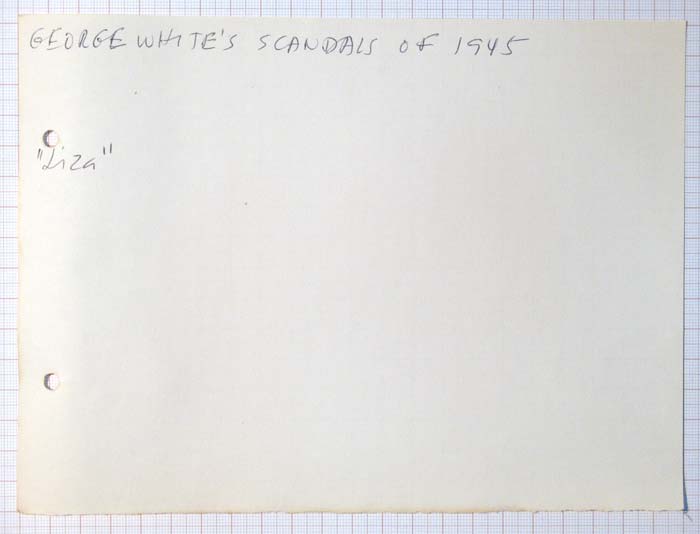 GEORGE WHITE'S SCANDALS OF 1945
"Liza"